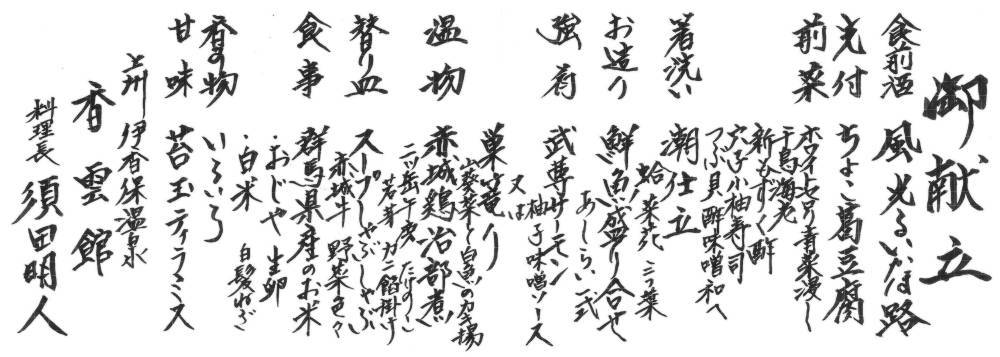 御献立
食前酒 風光るいかほ路
先付 ちょこ葛豆腐
前菜 ホワイトセロリ青菜浸し
千鳥海老
新もずく酢
穴子小袖寿司
つぶ貝酢味噌和へ
箸洗い 潮仕立
蛤 菜花 三つ葉
お造り 鮮魚盛り合せ
あしらい一式
強肴 武尊サーモン
柚子味噌ソース
又は
巣篭り
山葵菜と白魚の
温物 赤城鶏治部煮
二ッ岳午房 たけのこ
若芽 カニ餡掛け
替り皿 スープしゃぶしゃぶ
赤城牛 野菜色々
食事 群馬県産のお米
・おじや 生卵
・白米 白髪ねぎ
香の物 いろいろ
甘味 苔玉ティラミス
上州 伊香保温泉
香雲館
料理長 須田明人